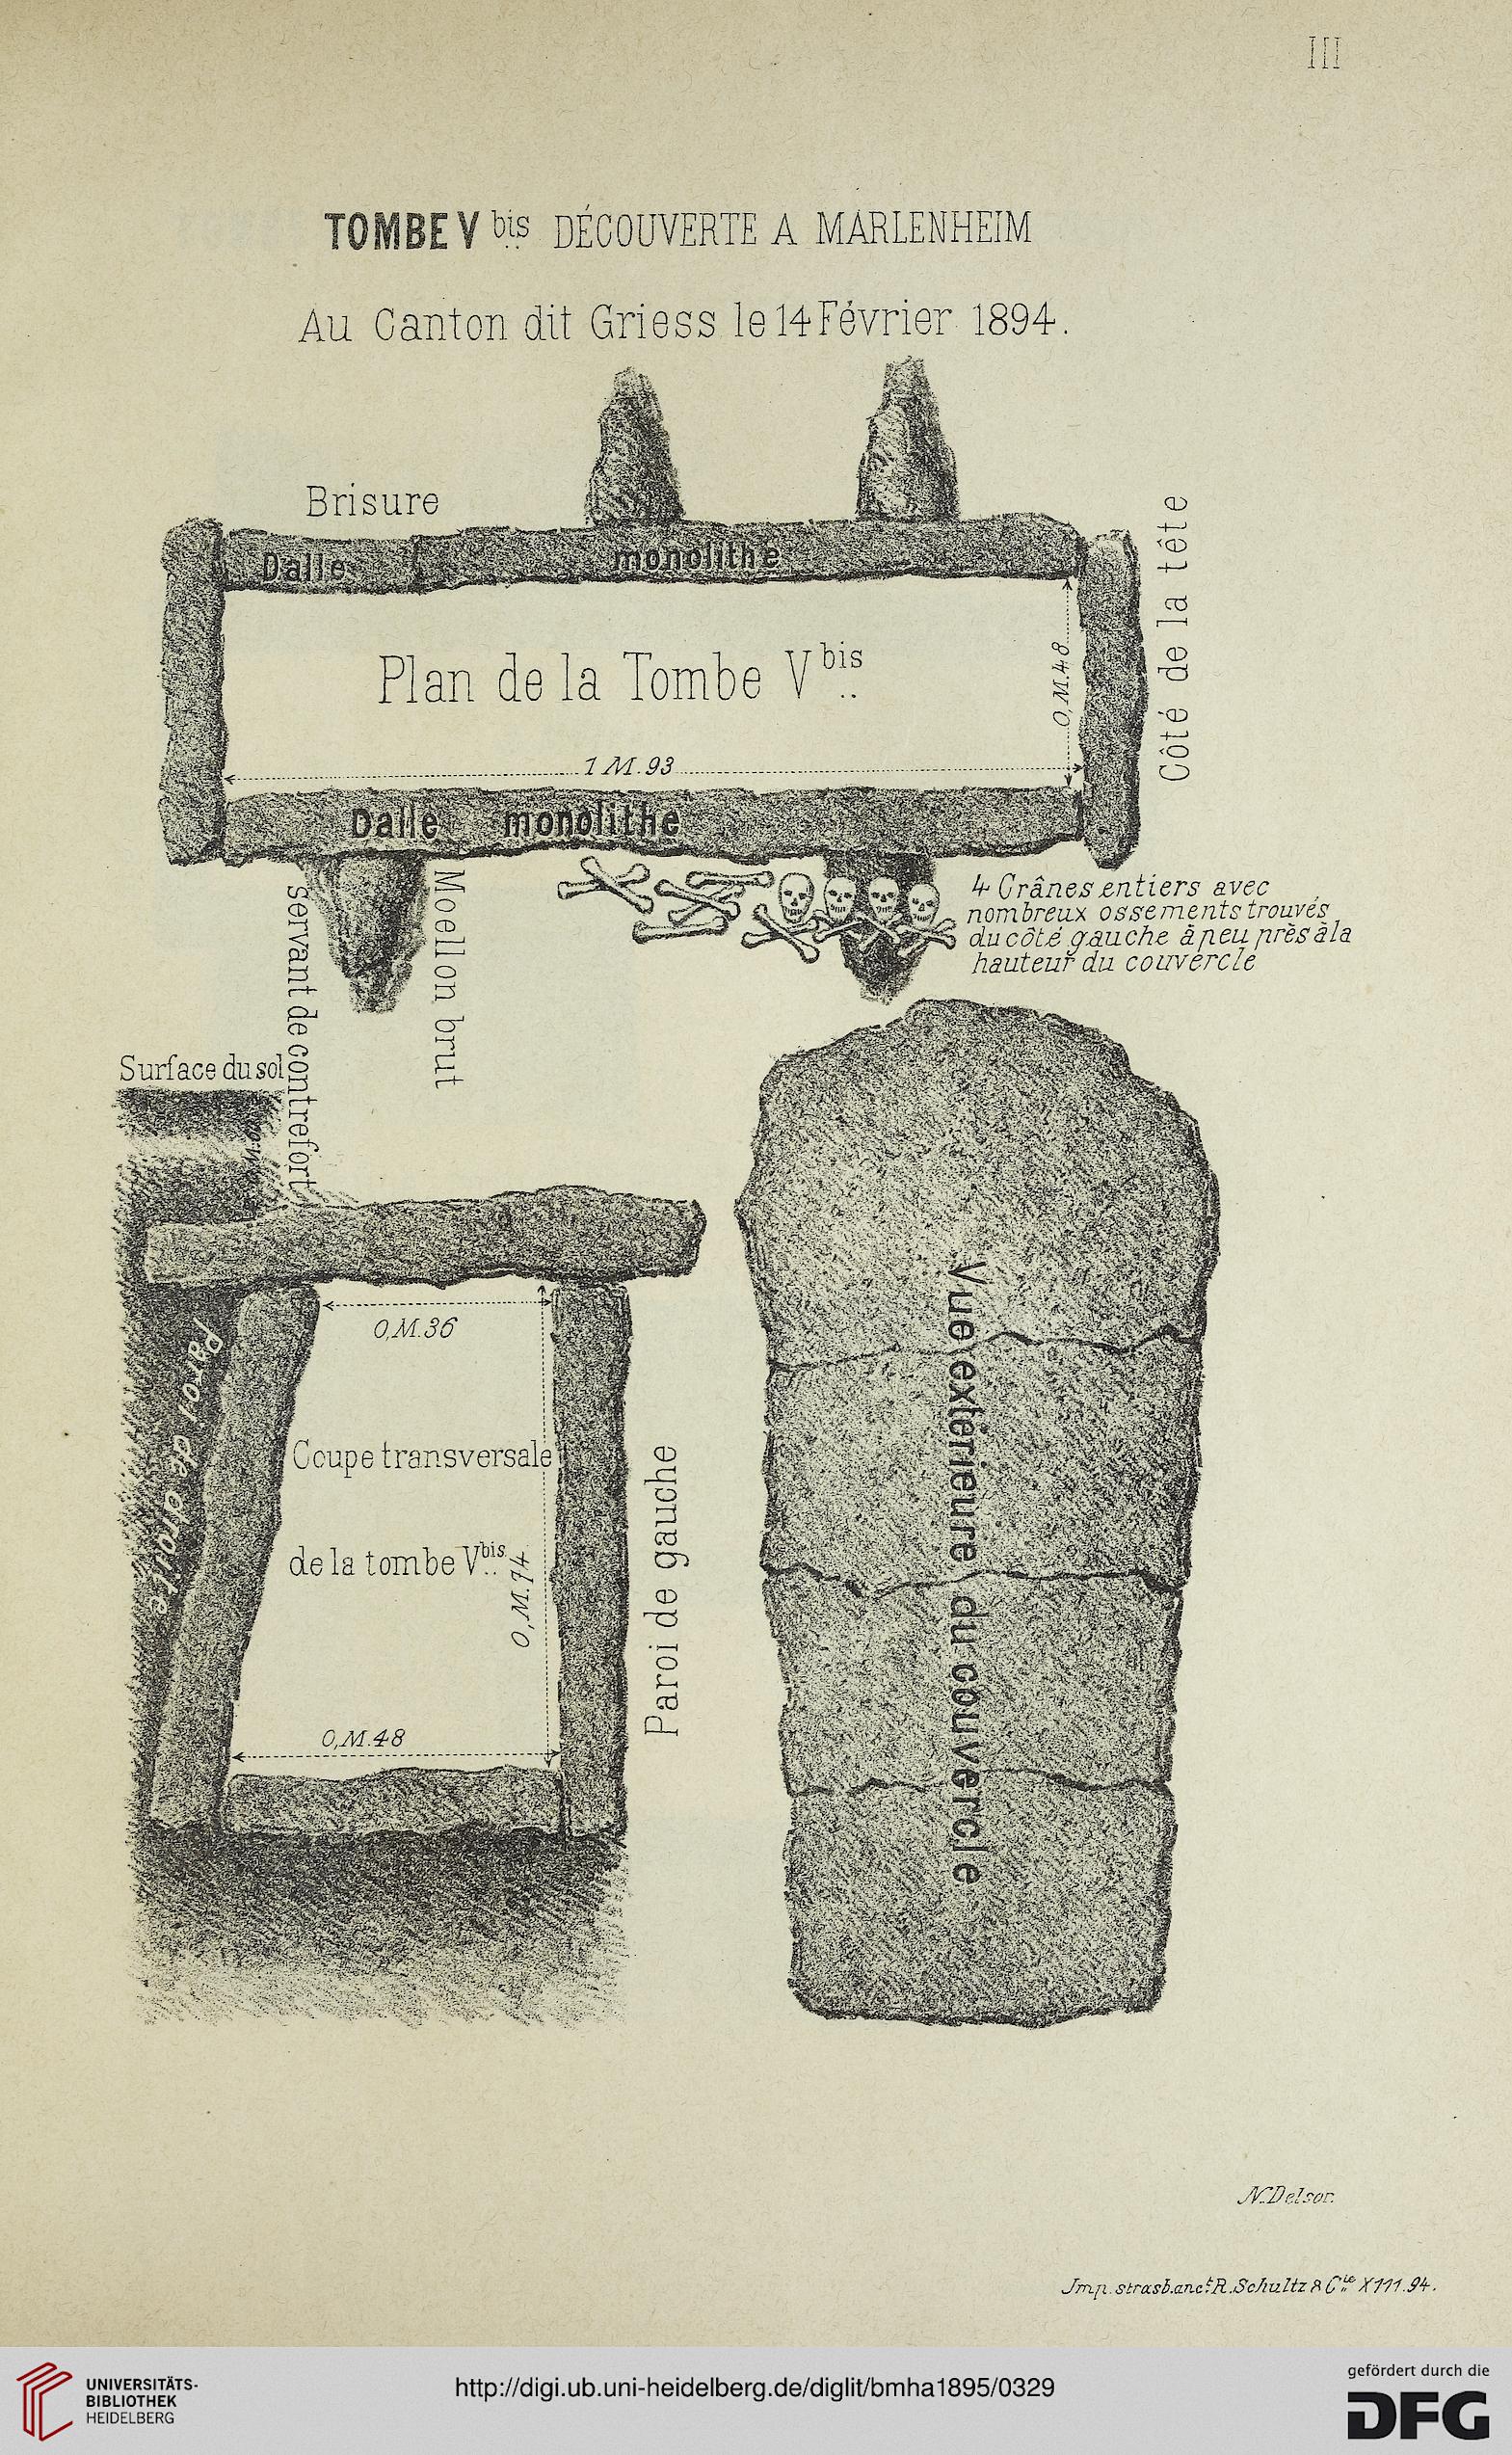 III
TOMBE V bis DÉCOUVERTE A MARLENHEIM
Au Canton dit Griess le 14 Février 1894.
Brisure
Dalle monolithe
Côté de la tête
Plan de la Tombe V bis
0,M.48
1 M.93
Dalle monolithe
Moellon brut
servant de contrefort
4 Crânes entiers avec
nombreux ossements trouvés
du côté gauche à peu près à la
hauteur du couvercle
Surface du sol
0,M.36
Paroi de droite
Coupe transversale
de la tombe V bis
0,M.74
Paroi de gauche
0,M.48
Vue extérieure du couvercle
N. Delsor.
Imp. strasb. anct R. Schultz & Cie XIII.94.
UNIVERSITÄTS-
BIBLIOTHEK
HEIDELBERG
http://digi.ub.uni-heidelberg.de/diglit/bmha1895/0329
gefördert durch die
DFG